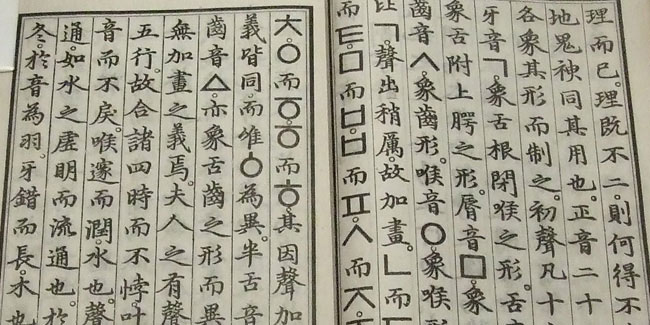 理而已。理既不二。則何得不
地鬼神同其用也。正音二十
各象其形而制之。初聲凡十
牙音ㄱ。象舌根閉喉之形。舌
象舌附上腭之形。脣音ㅁ。象
齒音ㅅ。象齒形。喉音ㅇ。象喉形
比ㄱ。聲出稍厲。故加畫。ㄴ而
而ㅌ。ㅁ而ㅂ。ㅂ而ㅍ。ㅅ而ㅈ
ㅊ。ㅇ而ㆆ。ㆆ而ㅎ。其因聲加
義皆同。而唯ㆁ為異。半舌音
齒音ㅿ。亦象舌齒之形而異
無加畫之義焉。夫人之有聲
五行。故合諸四時而不悖。叶
音而不戾。喉邃而潤。水也。聲
通。如水之虛明而流通也。於
冬。於音為羽。牙錯而長。木也